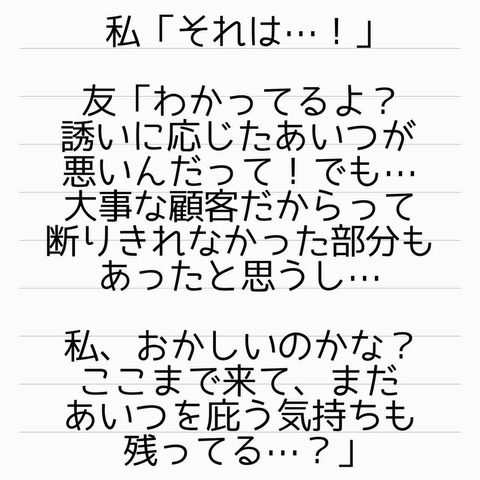 私「それは…！」
友「わかってるよ？
誘いに応じたあいつが
悪いんだって！でも…
大事な顧客だからって
断りきれなかった部分も
あったと思うし…
私、おかしいのかな？
ここまで来て、まだ
あいつを庇う気持ちも
残ってる…？」